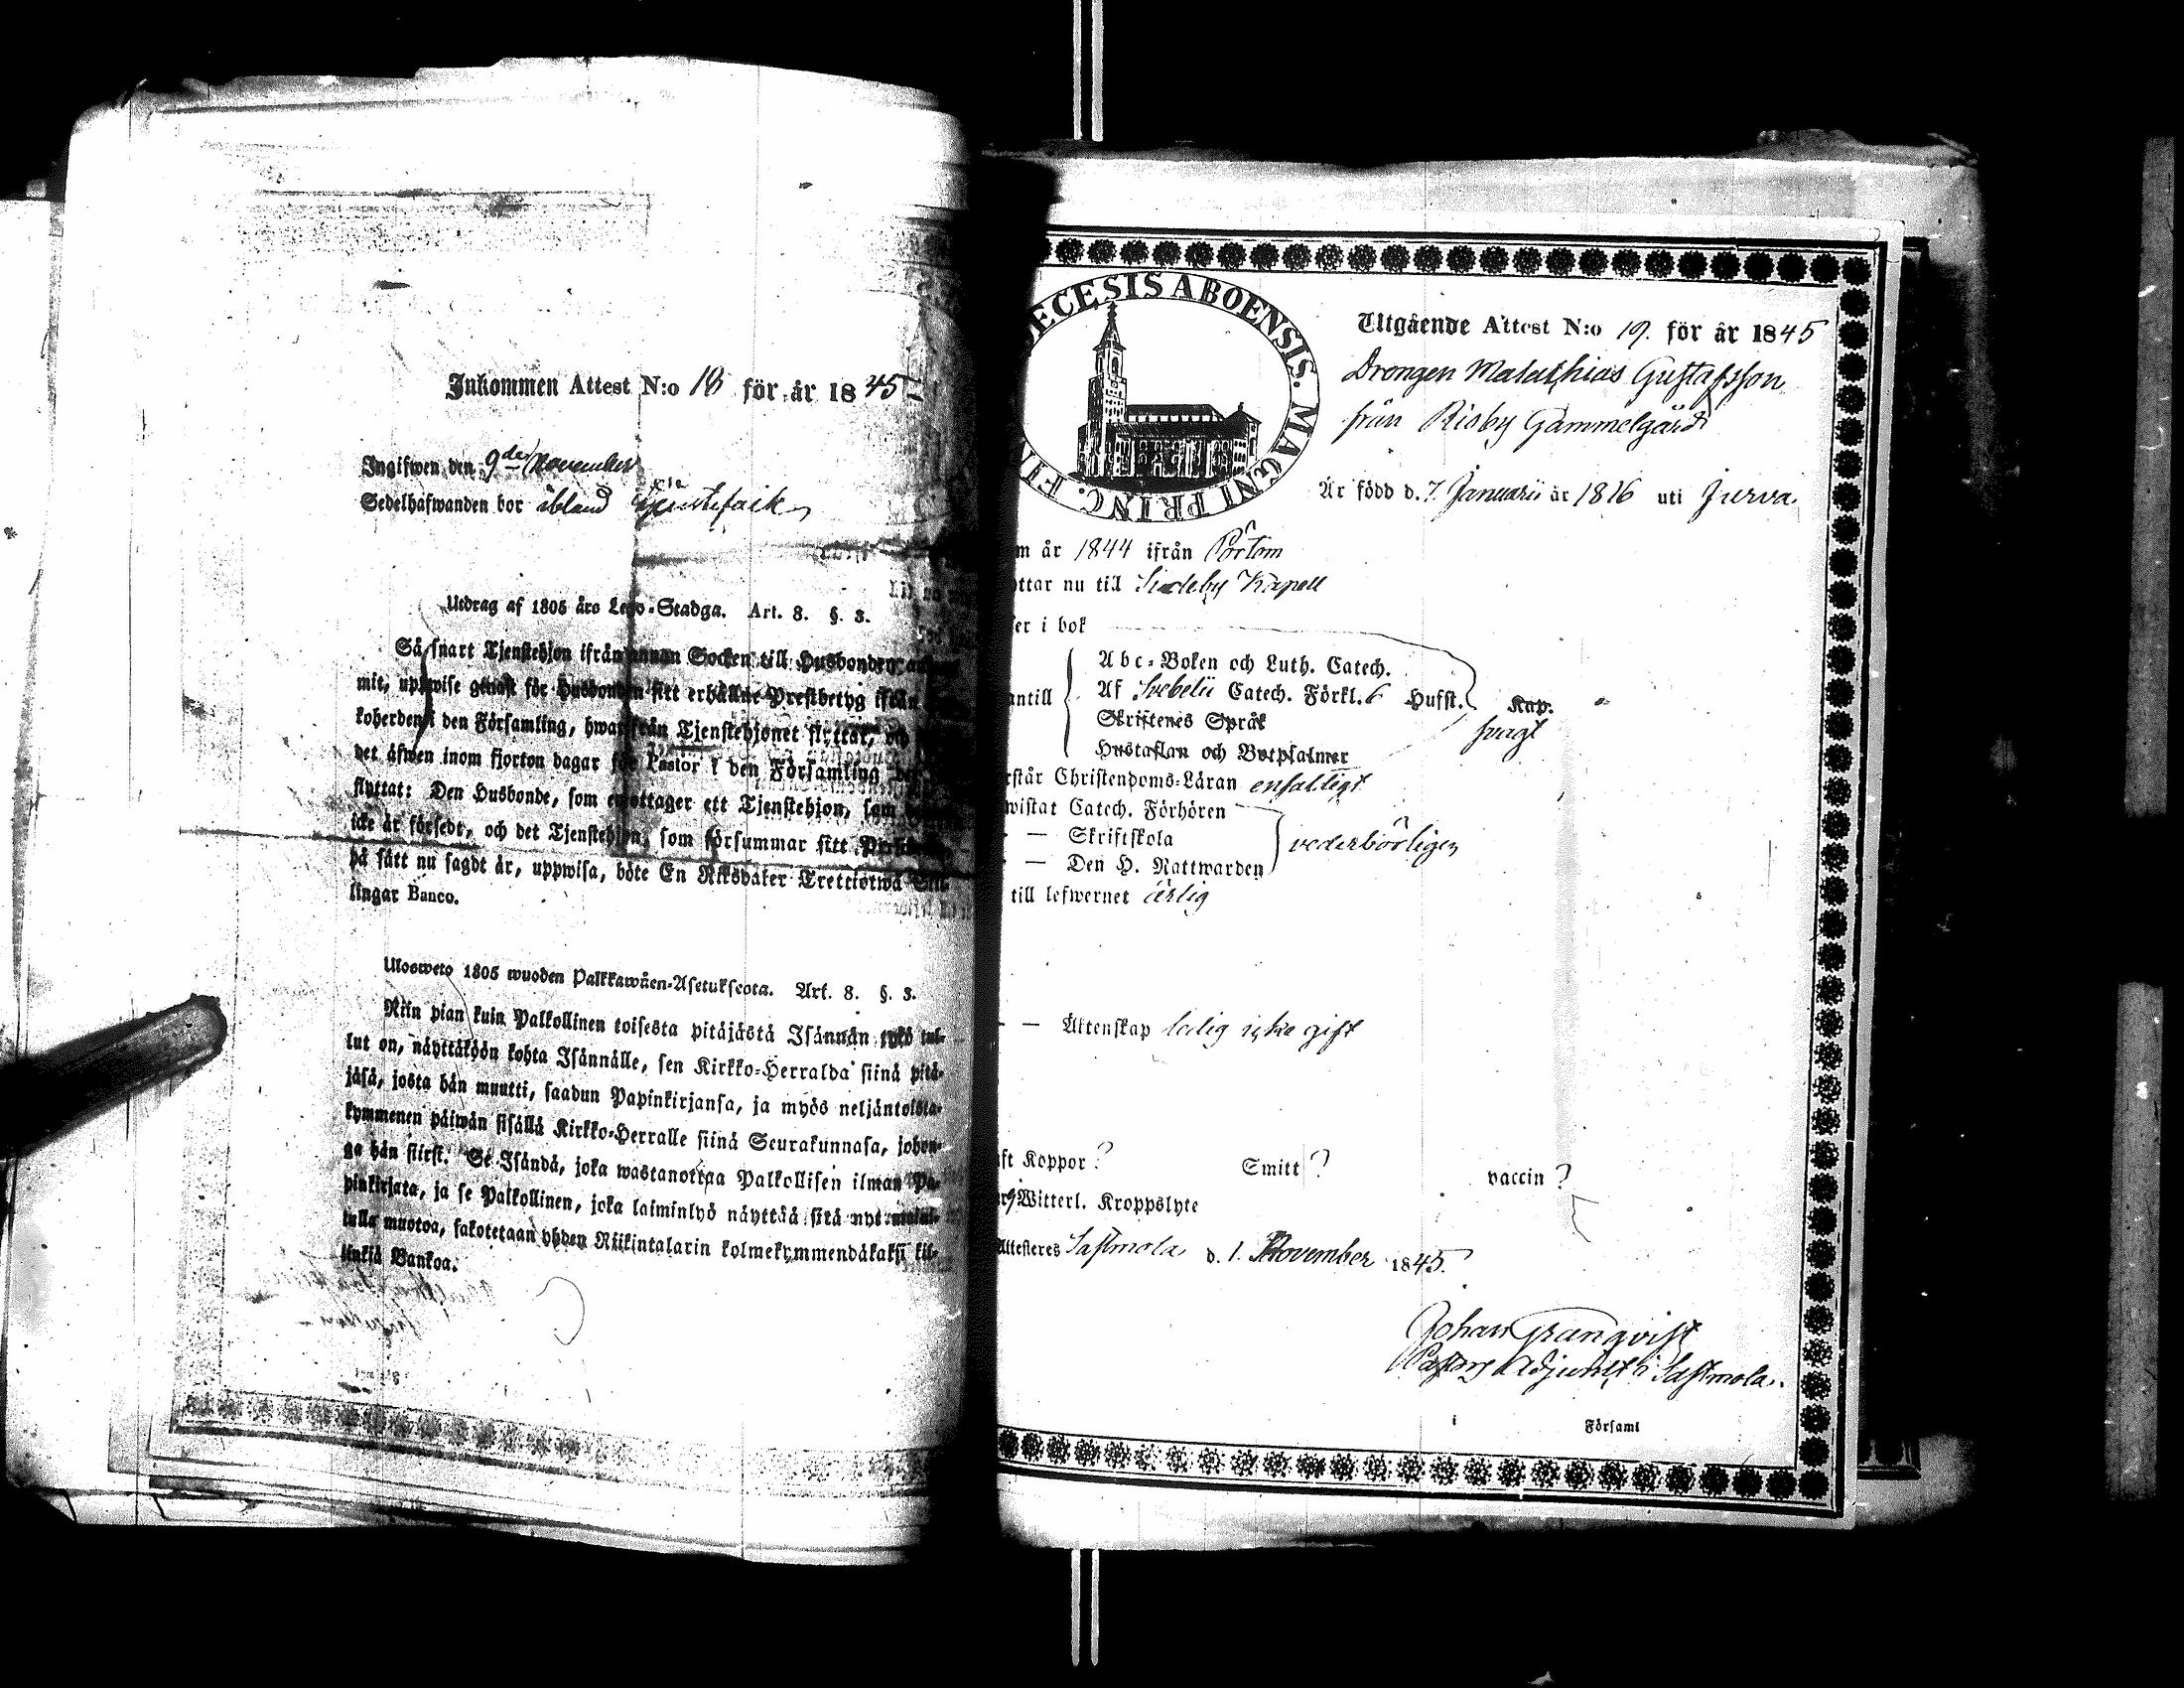 Inkommen Attest N:o 18 för år 1845
Ingifwen den 9de November
Sedelhafwanden bor ibland
Utdrag af 1805 års Lego-Stadga. Art. 8. §. 3.
Så snart Tjenstehjon ifrån annan Socken till Husbonden
mit, uppwise genast för Husbonden sitt erhållne Prestbetyg ifrån
koherden i den Församling, hwarifrån Tjenstehjonet flyttat, och
det äfwen inom fjorton dagar för Pastor i den Församling
flyttat: Den Husbonde, som emottager ett Tjenstehjon, som
icke är försedt, och det Tjenstehjon, som försummar sitt
på sått nu sagdt är, uppwisa, böte En Riksdaler Trettiotwå Skil-
lingar Banco.
Ulosweto 1805 wuoden Palkkawäen-Asetuksesta. Art. 8. §. 3.
Niin pian kuin Palkollinen toisesta pitäjästä Isännän tykö tul-
lut on, näyttäköön kohta Isännälle, sen Kirkko-Herralda siinä pitä-
jäsä, josta hän muutti, saadun Papinkirjansa, ja myös neljäntoista-
kymmenen päiwän sisällä Kirkko-Herralle siinä Seurakunnasa, johon-
ga hän siirst. Se Isändä, joka wastanottaa Palkollisen ilman Pa-
pinkirjata, ja se Palkollinen, joka laiminlyö näyttää sitä nyt mainit-
tulla muotoa, sakotetaan yhden Riikintalarin kolmekymmendäkaksi kil-
linkiä Bankoa.
ECESIS ABOENSIS. MAGNI PRINC. FI
Utgående Attest N:o 19. för år 1845
Drengen Malachias Gustafsson
från Risby Gammelgård
Är född d. 7. Januarii år 1816 uti Jurva.
m år 1844 ifrån Pörtom
ttar nu till Sideby Kapell
ser i bok
antill
Abc-Boken och Luth. Catech.
Af Svebelii Catech. Förkl. 6 Hufst. Kap.
svagt
Skriftenes Språk
Hustaflan och Botpsalmer
rstår Christendoms-Läran enfaldigt
wistat Catech. Förhören
— Skriftskola
vederbörligen
— Den H. Nattwarden
till lefwernet ärlig
— — Äktenskap ledig icke gift
ft Koppor? Smitt? vaccin?
Witterl. Kroppslyte
Attesteres Sastmola d. 1. November 1845.
Johan Granqvist
Pastors Adjunkt i Sastmola.
i Församl